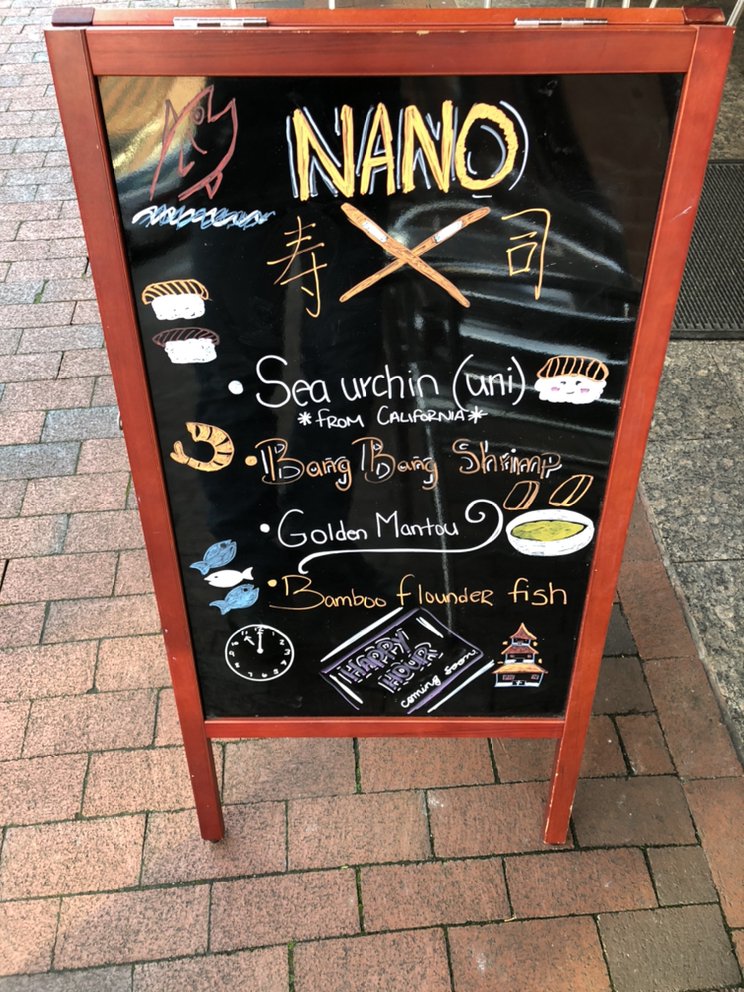 NANO
寿 司
• Sea urchin (uni)
*FROM CALIFORNIA*
• Bang Bang Shrimp
• Golden Mantou
• Bamboo flounder fish
HAPPY
HOUR
coming soon